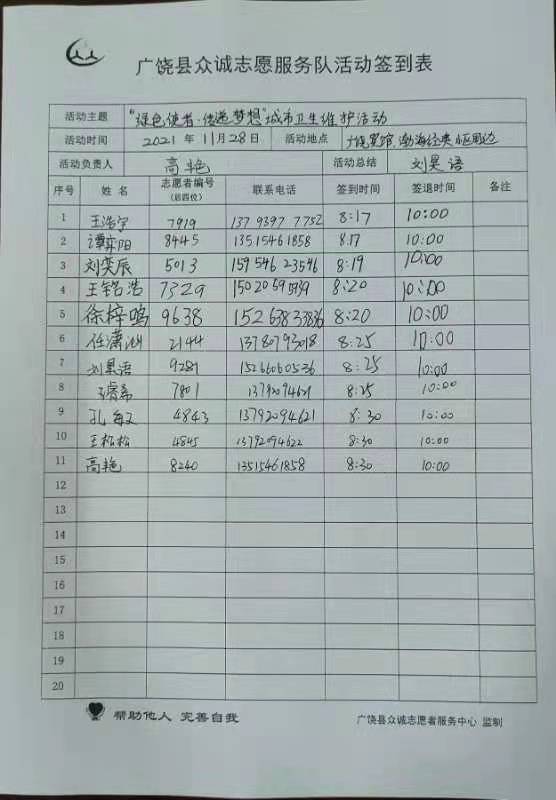 广饶县众诚志愿服务队活动签到表
活动主题 "绿色使者·传递梦想"城市卫生维护活动
活动时间 2021 年 11月28日 活动地点 广饶宾馆、渤海经典小区周边
活动负责人 高艳 活动总结 刘昊语
序号 姓 名 志愿者编号 (后四位) 联系电话 签到时间 签退时间 备注
1 王浩宇 7919 137 9397 7752 8:17 10:00
2 谭奕阳 8445 13515461858 8:17 10:00
3 刘奕辰 5013 159 546 23546 8:19 10:00
4 王铭浩 7329 150206 8:20 10:00
5 徐梓鸣 9638 152 638 33836 8:20 10:00
6 任潇 2144 13780793018 8:25 10:00
7 刘昊语 9281 15266060536 8:25 10:00
8 睿希 7801 13792094621 8:25 10:00
9 孔敏 4843 13792094621 8:30 10:00
10 王松松 4845 13792094622 8:30 10:00
11 高艳 8240 13515461858 8:30 10:00
12
13
14
15
16
17
18
19
20
帮助他人 完善自我 广饶县众诚志愿者服务中心 监制